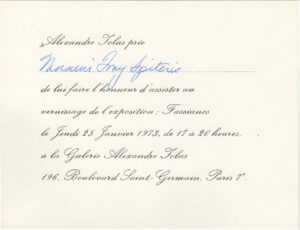 Alexandre Iolas prie
Tony Spiteris
de lui faire l'honneur d'assister au
vernissage de l'exposition: Fassianos
le Jeudi 25 Janvier 1973, de 17 a 20 heures.
a la Galerie Alexandre Iolas
196, Boulevard Saint-Germain. Paris 7e.